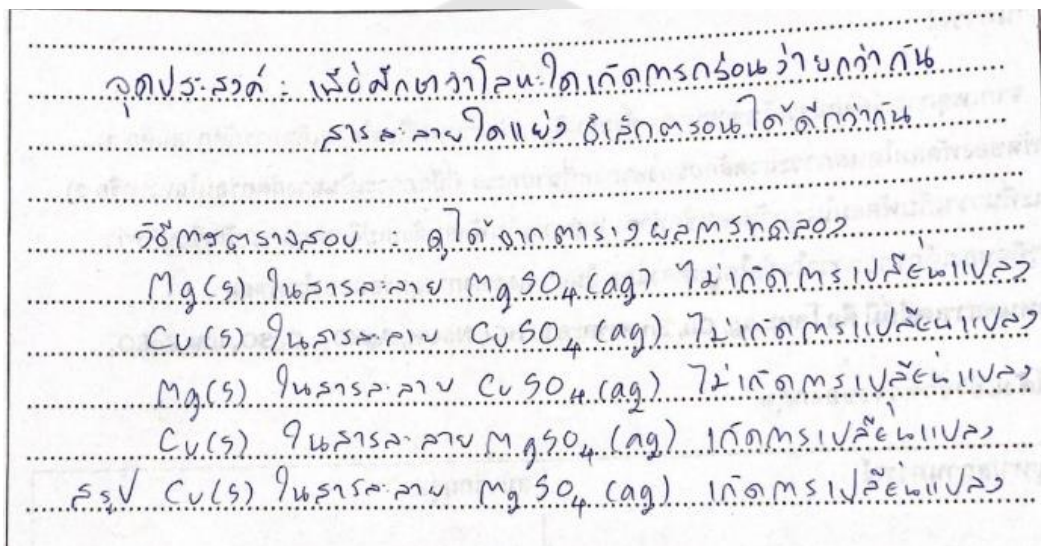 จุดประสงค์ : เพื่อศึกษาว่าโลหะใดเกิดการกร่อนง่ายกว่ากัน
สารละลายใดแย่งอิเล็กตรอนได้ดีกว่ากัน
วิธีการตรวจสอบ ดูได้จากตารางผลการทดลอง
Mg(s) ในสารละลาย MgSO4(aq) ไม่เกิดการเปลี่ยนแปลง
Cu(s) ในสารละลาย CuSO4(aq) ไม่เกิดการเปลี่ยนแปลง
Mg(s) ในสารละลาย CuSO4(aq) ไม่เกิดการเปลี่ยนแปลง
Cu(s) ในสารละลาย MgSO4(aq) เกิดการเปลี่ยนแปลง
สรุป Cu(s) ในสารละลาย MgSO4(aq) เกิดการเปลี่ยนแปลง